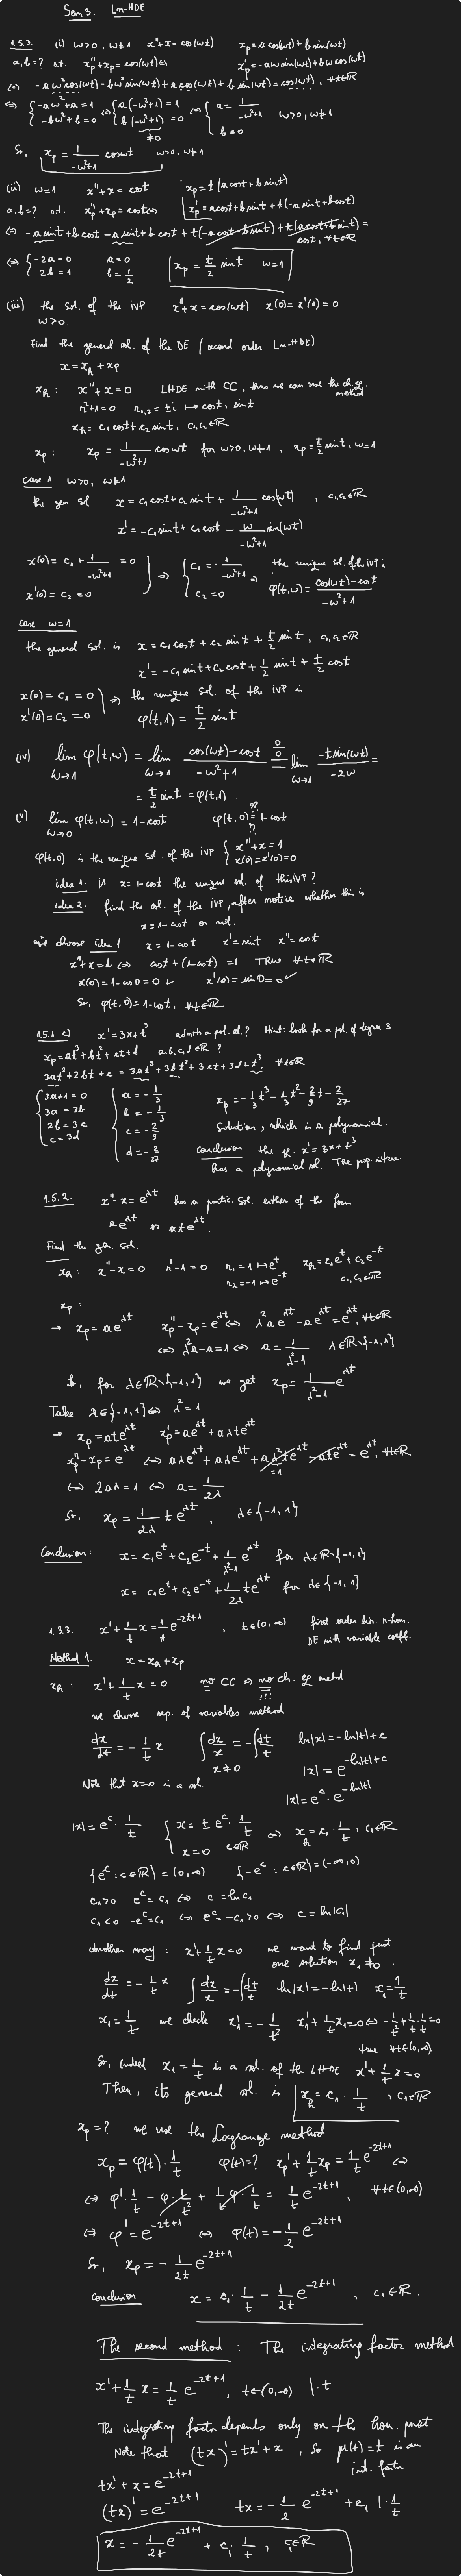 Sem 3. Ln-HDE
1.5.3. (i) ω>0, ω≠1 x''+x=cos(ωt) x_p=a cos(ωt)+b sin(ωt)
a,b=? s.t. x_p''+x_p=cos(ωt) ⇔ x_p'=-aω sin(ωt)+bω cos(ωt)
⇔ -aω² cos(ωt)-bω² sin(ωt)+a cos(ωt)+b sin(ωt)=cos(ωt), ∀t∈ℝ
⇔ { -aω²+a=1 ⇔ { a(-ω²+1)=1 ⇔ { a=1/(-ω²+1) ω>0, ω≠1
-bω²+b=0 b(-ω²+1)=0 b=0
≠0
So, x_p = 1/(-ω²+1) cosωt ω>0, ω≠1
(ii) ω=1 x''+x=cost x_p=t(a cost+b sint)
a,b=? s.t. x_p''+x_p=cost ⇔ x_p'=a cost+b sint+t(-a sint+b cost)
⇔ -a sint+b cost-a sint+b cost+t(-a cost-b sint)+t(a cost+b sint)=
cost, ∀t∈ℝ
⇔ { -2a=0 a=0 x_p = t/2 sint ω=1
2b=1 b=1/2
(iii) the sol. of the IVP x''+x=cos(ωt) x(0)=x'(0)=0
ω>0.
Find the general sol. of the DE (second order Ln-HDE)
x=x_h+x_p
x_h: x''+x=0 LHDE with CC, thus we can use the ch.eq. method
r²+1=0 r_{1,2}=±i ↦ cost, sint
x_h=c₁cost+c₂sint, c₁,c₂∈ℝ
x_p: x_p=1/(-ω²+1) cosωt for ω>0, ω≠1, x_p=t/2 sint, ω=1
case 1 ω>0, ω≠1
the gen sol x=c₁cost+c₂sint+1/(-ω²+1) cos(ωt), c₁,c₂∈ℝ
x'=-c₁sint+c₂cost-ω/(-ω²+1) sin(ωt)
x(0)=c₁+1/(-ω²+1)=0 } ⇒ { c₁=-1/(-ω²+1) ⇒ the unique sol. of the IVP is
x'(0)=c₂=0 c₂=0 φ(t,ω)=(cos(ωt)-cost)/(-ω²+1)
case ω=1
the general sol. is x=c₁cost+c₂sint+t/2 sint, c₁,c₂∈ℝ
x'=-c₁sint+c₂cost+1/2 sint+t/2 cost
x(0)=c₁=0 } ⇒ the unique sol. of the IVP is
x'(0)=c₂=0 φ(t,1)=t/2 sint
(iv) lim_{ω→1} φ(t,ω)=lim_{ω→1} (cos(ωt)-cost)/(-ω²+1) =^{0/0} lim_{ω→1} (-t sin(ωt))/(-2ω)=
=t/2 sint=φ(t,1).
(v) lim_{ω→0} φ(t,ω)=1-cost φ(t,0)=1-cost
??
??
φ(t,0) is the unique sol. of the IVP { x''+x=1
x(0)=x'(0)=0
idea 1. is x=1-cost the unique sol. of this IVP?
idea 2. find the sol. of the IVP, after notice whether this is
x=1-cost or not.
we choose idea 1 x=1-cost x'=sint x''=cost
x''+x=1 ⇔ cost+(1-cost)=1 TRUE ∀t∈ℝ
x(0)=1-cos0=0 ✓ x'(0)=sin0=0 ✓
So, φ(t,0)=1-cost, ∀t∈ℝ
1.5.1 c) x'=3x+t³ admits a pol. sol.? Hint: look for a pol. of degree 3
x_p=at³+bt²+ct+d a,b,c,d∈ℝ?
3at²+2bt+c=3at³+3bt²+3ct+3d+t³ ∀t∈ℝ
{ 3a+1=0 { a=-1/3 x_p=-1/3 t³-1/3 t²-2/9 t-2/27
3a=3b b=-1/3
2b=3c c=-2/9 Solution, which is a polynomial.
c=3d d=-2/27 Conclusion the eq. x'=3x+t³
has a polynomial sol. The prop. is true.
1.5.2. x''-x=e^{λt} has a partic. sol. either of the form
ae^{λt} or ate^{λt}.
Find the gen. sol.
x_h: x''-x=0 r²-1=0 r₁=1 ↦ e^t x_h=c₁e^t+c₂e^{-t}
r₂=-1 ↦ e^{-t} c₁,c₂∈ℝ
x_p:
→ x_p=ae^{λt} x_p''-x_p=e^{λt} ⇔ λ²ae^{λt}-ae^{λt}=e^{λt}, ∀t∈ℝ
⇔ λ²a-a=1 ⇔ a=1/(λ²-1) λ∈ℝ\{-1,1}
So, for λ∈ℝ\{-1,1} we get x_p=1/(λ²-1) e^{λt}
Take λ∈{-1,1} ⇔ λ²=1
→ x_p=ate^{λt} x_p'=ae^{λt}+aλte^{λt}
x_p''-x_p=e^{λt} ⇔ aλe^{λt}+aλe^{λt}+aλ²te^{λt}-ate^{λt}=e^{λt}, ∀t∈ℝ
=1
⇔ 2aλ=1 ⇔ a=1/(2λ)
So, x_p=1/(2λ) te^{λt}, λ∈{-1,1}
Conclusion: x=c₁e^t+c₂e^{-t}+1/(λ²-1) e^{λt} for λ∈ℝ\{-1,1}
x=c₁e^t+c₂e^{-t}+1/(2λ) te^{λt} for λ∈{-1,1}
1.3.3. x'+1/t x=1/t e^{-2t+1}, t∈(0,∞) first order lin. n-hom.
DE with variable coeff.
Method 1. x=x_h+x_p
x_h: x'+1/t x=0 no CC ⇒ no ch. eq method
!!!
we choose sep. of variables method
dx/dt=-1/t x ∫dx/x=-∫dt/t ln|x|=-ln|t|+c
x≠0 |x|=e^{-ln|t|+c}
Note that x=0 is a sol. |x|=e^c·e^{-ln|t|}
|x|=e^c·1/t { x=±e^c·1/t ⇔ x_h=c₁·1/t, c₁∈ℝ
x=0 c∈ℝ
{e^c: c∈ℝ}=(0,∞) {-e^c: c∈ℝ}=(-∞,0)
c₁>0 e^c=c₁ ⇔ c=ln c₁
c₁<0 -e^c=c₁ ⇔ e^c=-c₁>0 ⇔ c=ln|c₁|
Another way: x'+1/t x=0 we want to find just
one solution x₁≠0.
dx/dt=-1/t x ∫dx/x=-∫dt/t ln|x|=-ln|t| x₁=1/t
x₁=1/t we check x₁'=-1/t² x₁'+1/t x₁=0 ⇔ -1/t²+1/t·1/t=0
true ∀t∈(0,∞)
So, indeed x₁=1/t is a sol. of the LHDE x'+1/t x=0
Then, its general sol. is x_h=c₁·1/t, c₁∈ℝ
x_p=? we use the Lagrange method
x_p=φ(t)·1/t φ(t)=? x_p'+1/t x_p=1/t e^{-2t+1} ⇔
⇔ φ'·1/t-φ·1/t²+1/t φ·1/t=1/t e^{-2t+1}, ∀t∈(0,∞)
⇔ φ'=e^{-2t+1} ⇔ φ(t)=-1/2 e^{-2t+1}
So, x_p=-1/(2t) e^{-2t+1}
Conclusion x=c₁·1/t-1/(2t) e^{-2t+1}, c₁∈ℝ.
The second method: The integrating factor method
x'+1/t x=1/t e^{-2t+1}, t∈(0,∞) |·t
The integrating factor depends only on the hom. part
Note that (tx)'=tx'+x, so μ(t)=t is an
int. factor
tx'+x=e^{-2t+1}
(tx)'=e^{-2t+1} tx=-1/2 e^{-2t+1}+c₁ |·1/t
x=-1/(2t) e^{-2t+1}+c₁·1/t, c₁∈ℝ